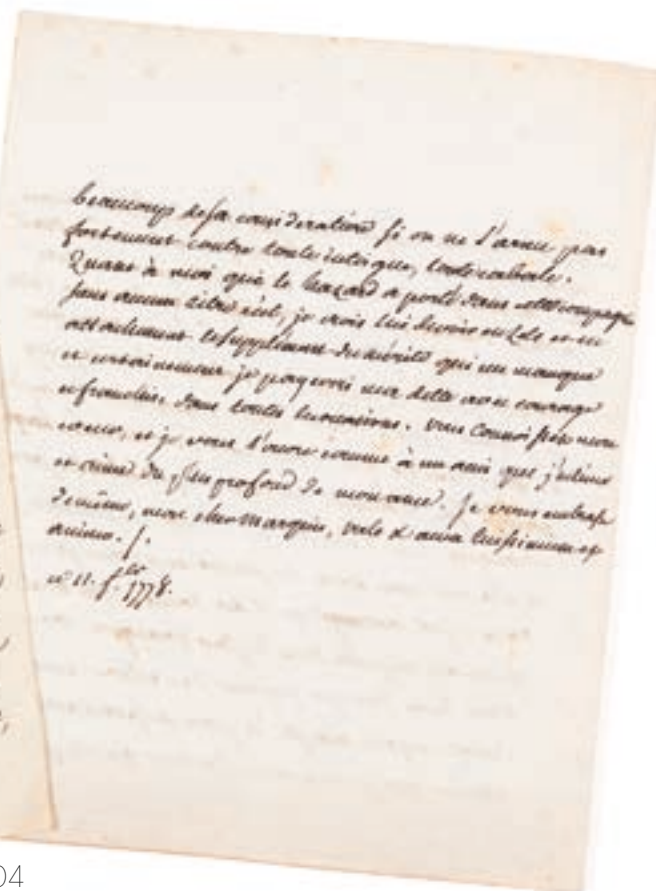 beaucoup de sa consideration si on ne s'arme pas
fortement contre toute intrigue, toute cabale.
Quant à moi que le hazard a porté dans cette compagnie
sans aucun titre réel, je crois lui devoir en zele et en
attachement le supplément du mérite qui me manque
et certainement je payerai ma dette avec courage
et franchise dans toutes les occasions. vous connoissés mon
coeur, et je vous l'ouvre comme à un ami que j'estime
et aime du plus profond de mon ame. je vous embrasse
de même, mon cher Marquis, vale &
animo. /.
ce 11. f.er 1778.
04